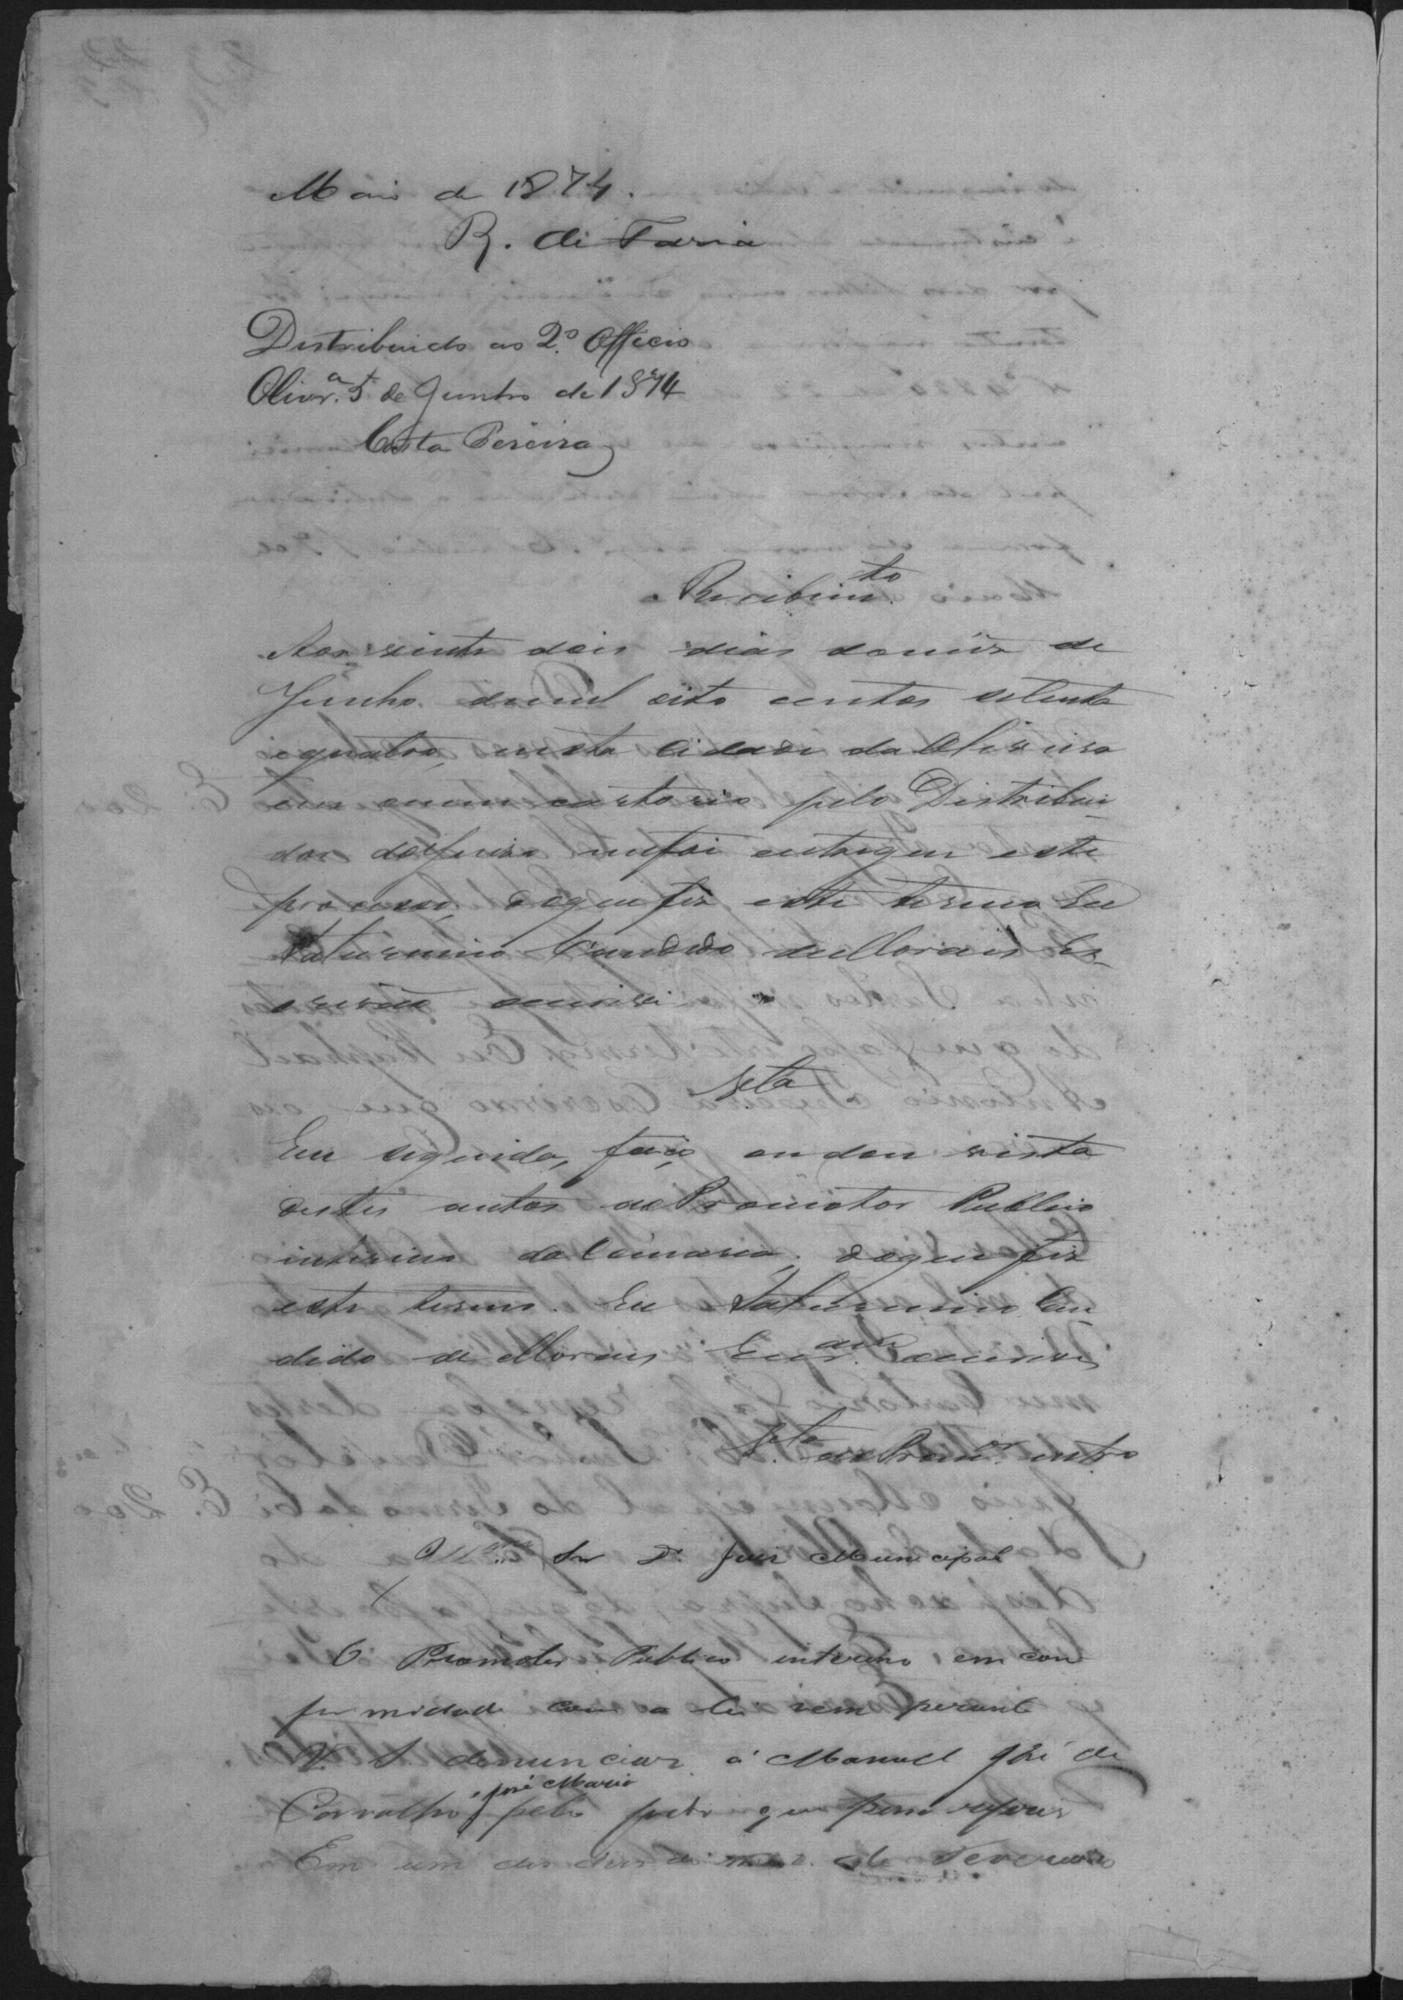 Maio de 1874.
R. de Faria
Distribuido ao 2.º Officio
Olivr.ª 5 de Junho de 1874
Costa Pereira
Recebim.to
Aos vinte dois dias domez de
Junho demil oito centos setenta
equatro, nesta Cidade da Oliveira
em meu cartorio pelo Distribui-
dor dojuizo mefoi entregue este
processo, doque fiz este termo Eu
Saturnino Candido deMorais Es-
crivão escrivi
V.ta
Em seguida, faço ou dou vista
destes autos aoPromotor Publico
interino daComarca, doque fiz
este termo. Eu Saturnino Can
dido de Morais Escr.am escrivi
V.ta aoProm.or intr.o
Ill.mo Snr D.r Juiz Municipal
O Promotor Publico interino em con
formidade com a lei vem perante
V. S. denunciar á Manoel José de
Carvalho, José Mario pelo facto que passa expor
Em um dos dias do mez de Fevereiro